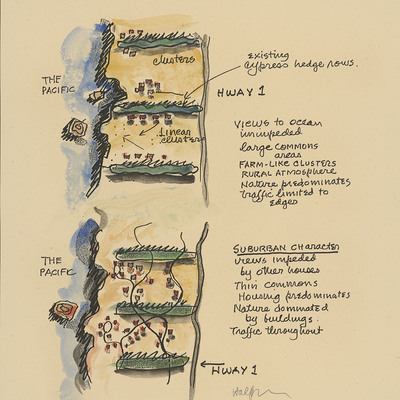 clusters
existing
cypress hedge rows.
THE
PACIFIC
HWAY 1
Linear
clusters
Views to ocean
unimpeded
large commons
areas
FARM-LIKE CLUSTERS
RURAL ATMOSPHERE
Nature predominates
Traffic limited to
edges
THE
PACIFIC
SUBURBAN CHARACTER
views impeded
by other houses
Thin commons
Housing predominates
Nature dominated
by buildings.
Traffic throughout
HWAY 1